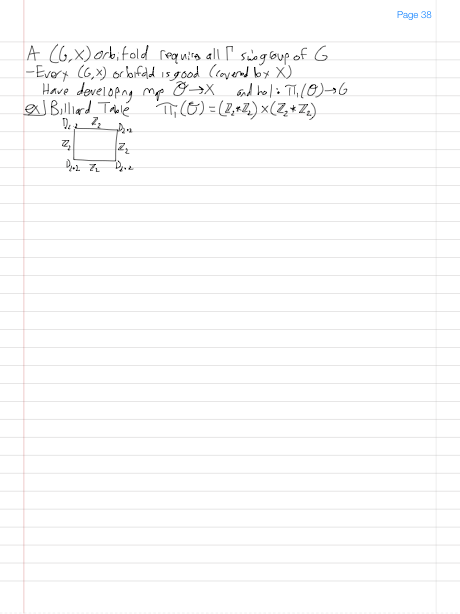 Page 38
A (G,X) orbifold requires all Γ subgroup of G
-Every (G,X) orbifold is good (covered by X)
Have developing map Õ→X and hol: π₁(O)→G
ex] Billiard Table π₁(O) = (ℤ₂*ℤ₂)×(ℤ₂*ℤ₂)
D₂.₂ ℤ₂ D₂.₂
ℤ₂ ℤ₂
D₂.₂ ℤ₂ D₂.₂